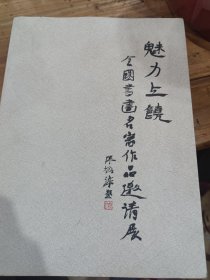 魅力上饒
全國書畫名家作品邀請展